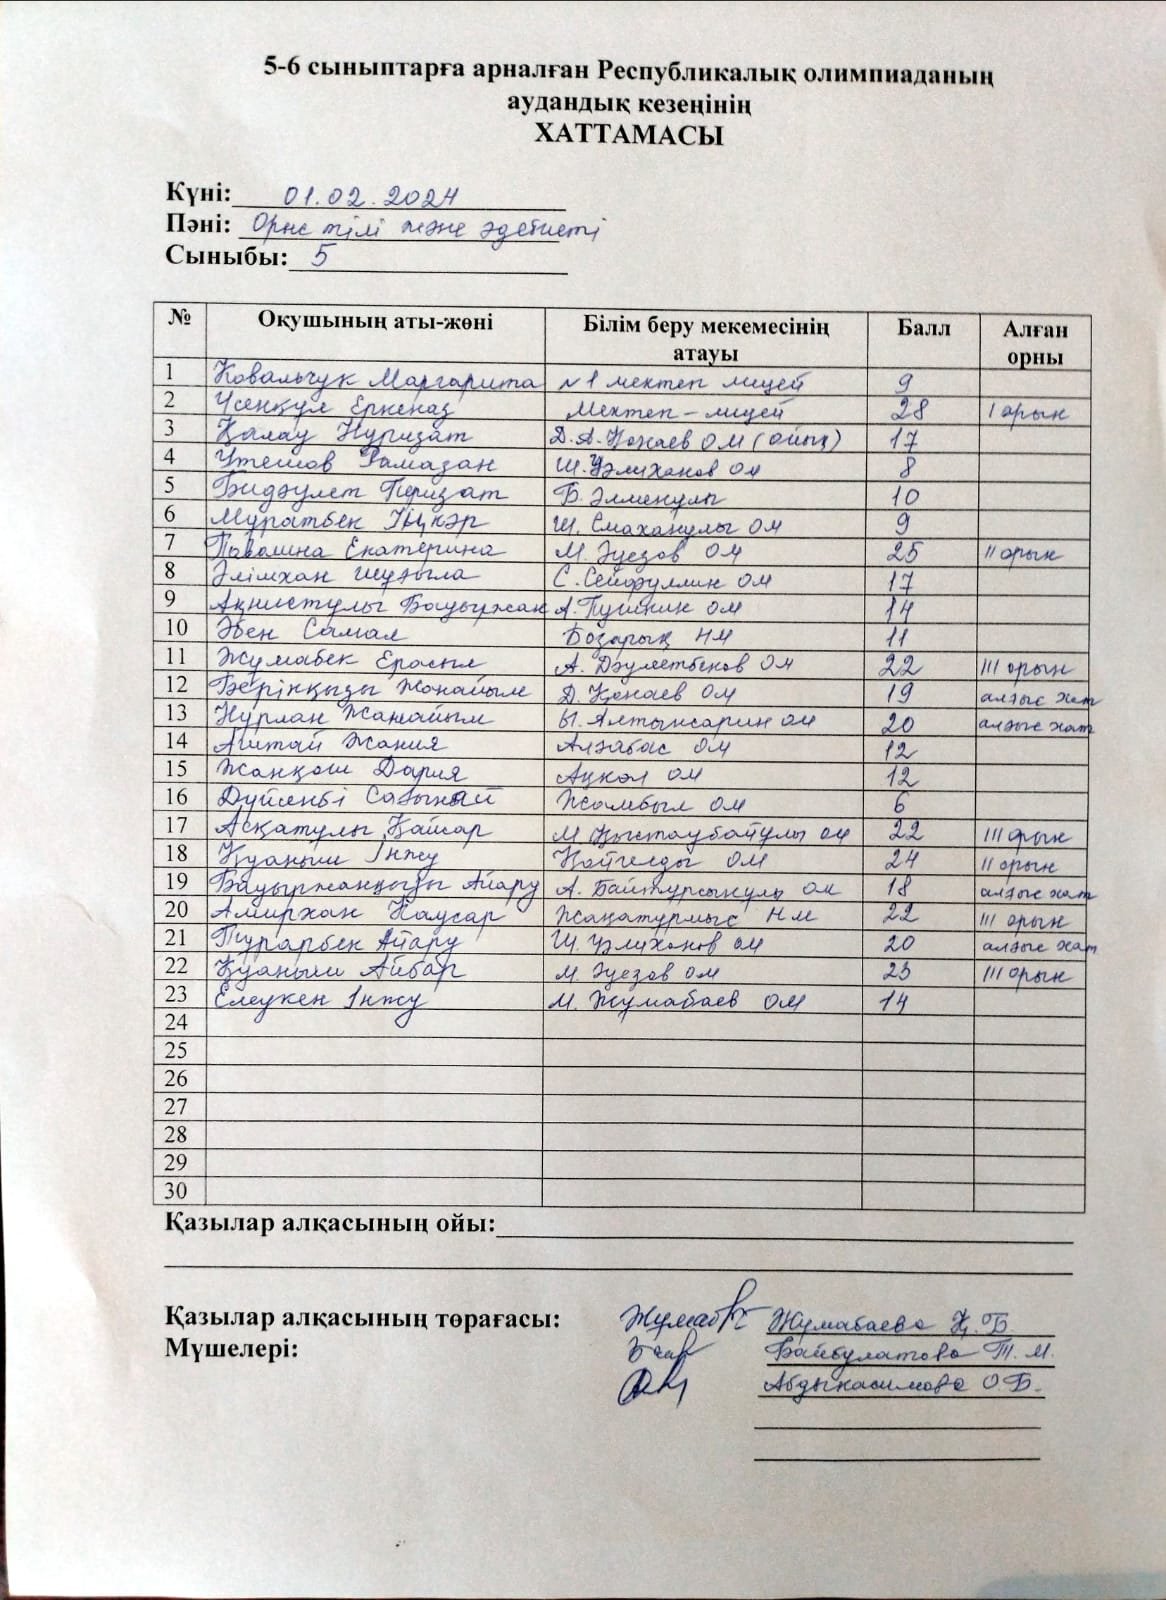 5-6 сыныптарға арналған Республикалық олимпиаданың
аудандық кезеңінің
ХАТТАМАСЫ
Күні: 01.02.2024
Пәні: Орыс тілі және әдебиеті
Сыныбы: 5
№ Оқушының аты-жөні Білім беру мекемесінің атауы Балл Алған орны
1 Ковальчук Маргарита №1 мектеп лицей 9
2 Үсенқұл Еркеназ Мектеп-лицей 28 I орын
3 Қалау Нұризат Д.А.Қонаев ОМ (ойық) 17
4 Утешов Рамазан Ш.Уәлиханов ОМ 8
5 Бидәулет Перизат Б. Әлменұлы 10
6 Мұратбек Іңкәр Ш. Смаханұлы ОМ 9
7 Павлина Екатерина М. Әуезов ОМ 25 II орын
8 Әлімхан Шуғыла С. Сейфуллин ОМ 17
9 Ақниетұлы Бауыржан А. Пушкин ОМ 14
10 Әбен Самал Бозарық НМ 11
11 Жұмабек Ерасыл А. Дәулетбеков ОМ 22 III орын
12 Берінқызы Жанайым Д. Қонаев ОМ 19 алғыс хат
13 Нұрлан Жанайым Ы. Алтынсарин ОМ 20 алғыс хат
14 Ағытай Жания Алғабас ОМ 12
15 Жанқош Дария Ақкөл ОМ 12
16 Дүйсенбі Сағынай Жамбыл ОМ 6
17 Асқатұлы Қайсар М. Қыстаубайұлы ОМ 22 III орын
18 Қуаныш Інжу Қойгелды ОМ 24 II орын
19 Бауыржанқызы Айару А. Байтұрсынұлы ОМ 18 алғыс хат
20 Амирхан Каусар Жаңатұрмыс НМ 22 III орын
21 Тұрарбек Айару Ш. Уәлиханов ОМ 20 алғыс хат
22 Қуаныш Айбар М. Әуезов ОМ 23 III орын
23 Елеукен Інжу М. Жұмабаев ОМ 14
24
25
26
27
28
29
30
Қазылар алқасының ойы:
Қазылар алқасының төрағасы: Жумабаева Қ.Б.
Мүшелері: Байбулатова Т.М.
Абдыкасимова О.Б.